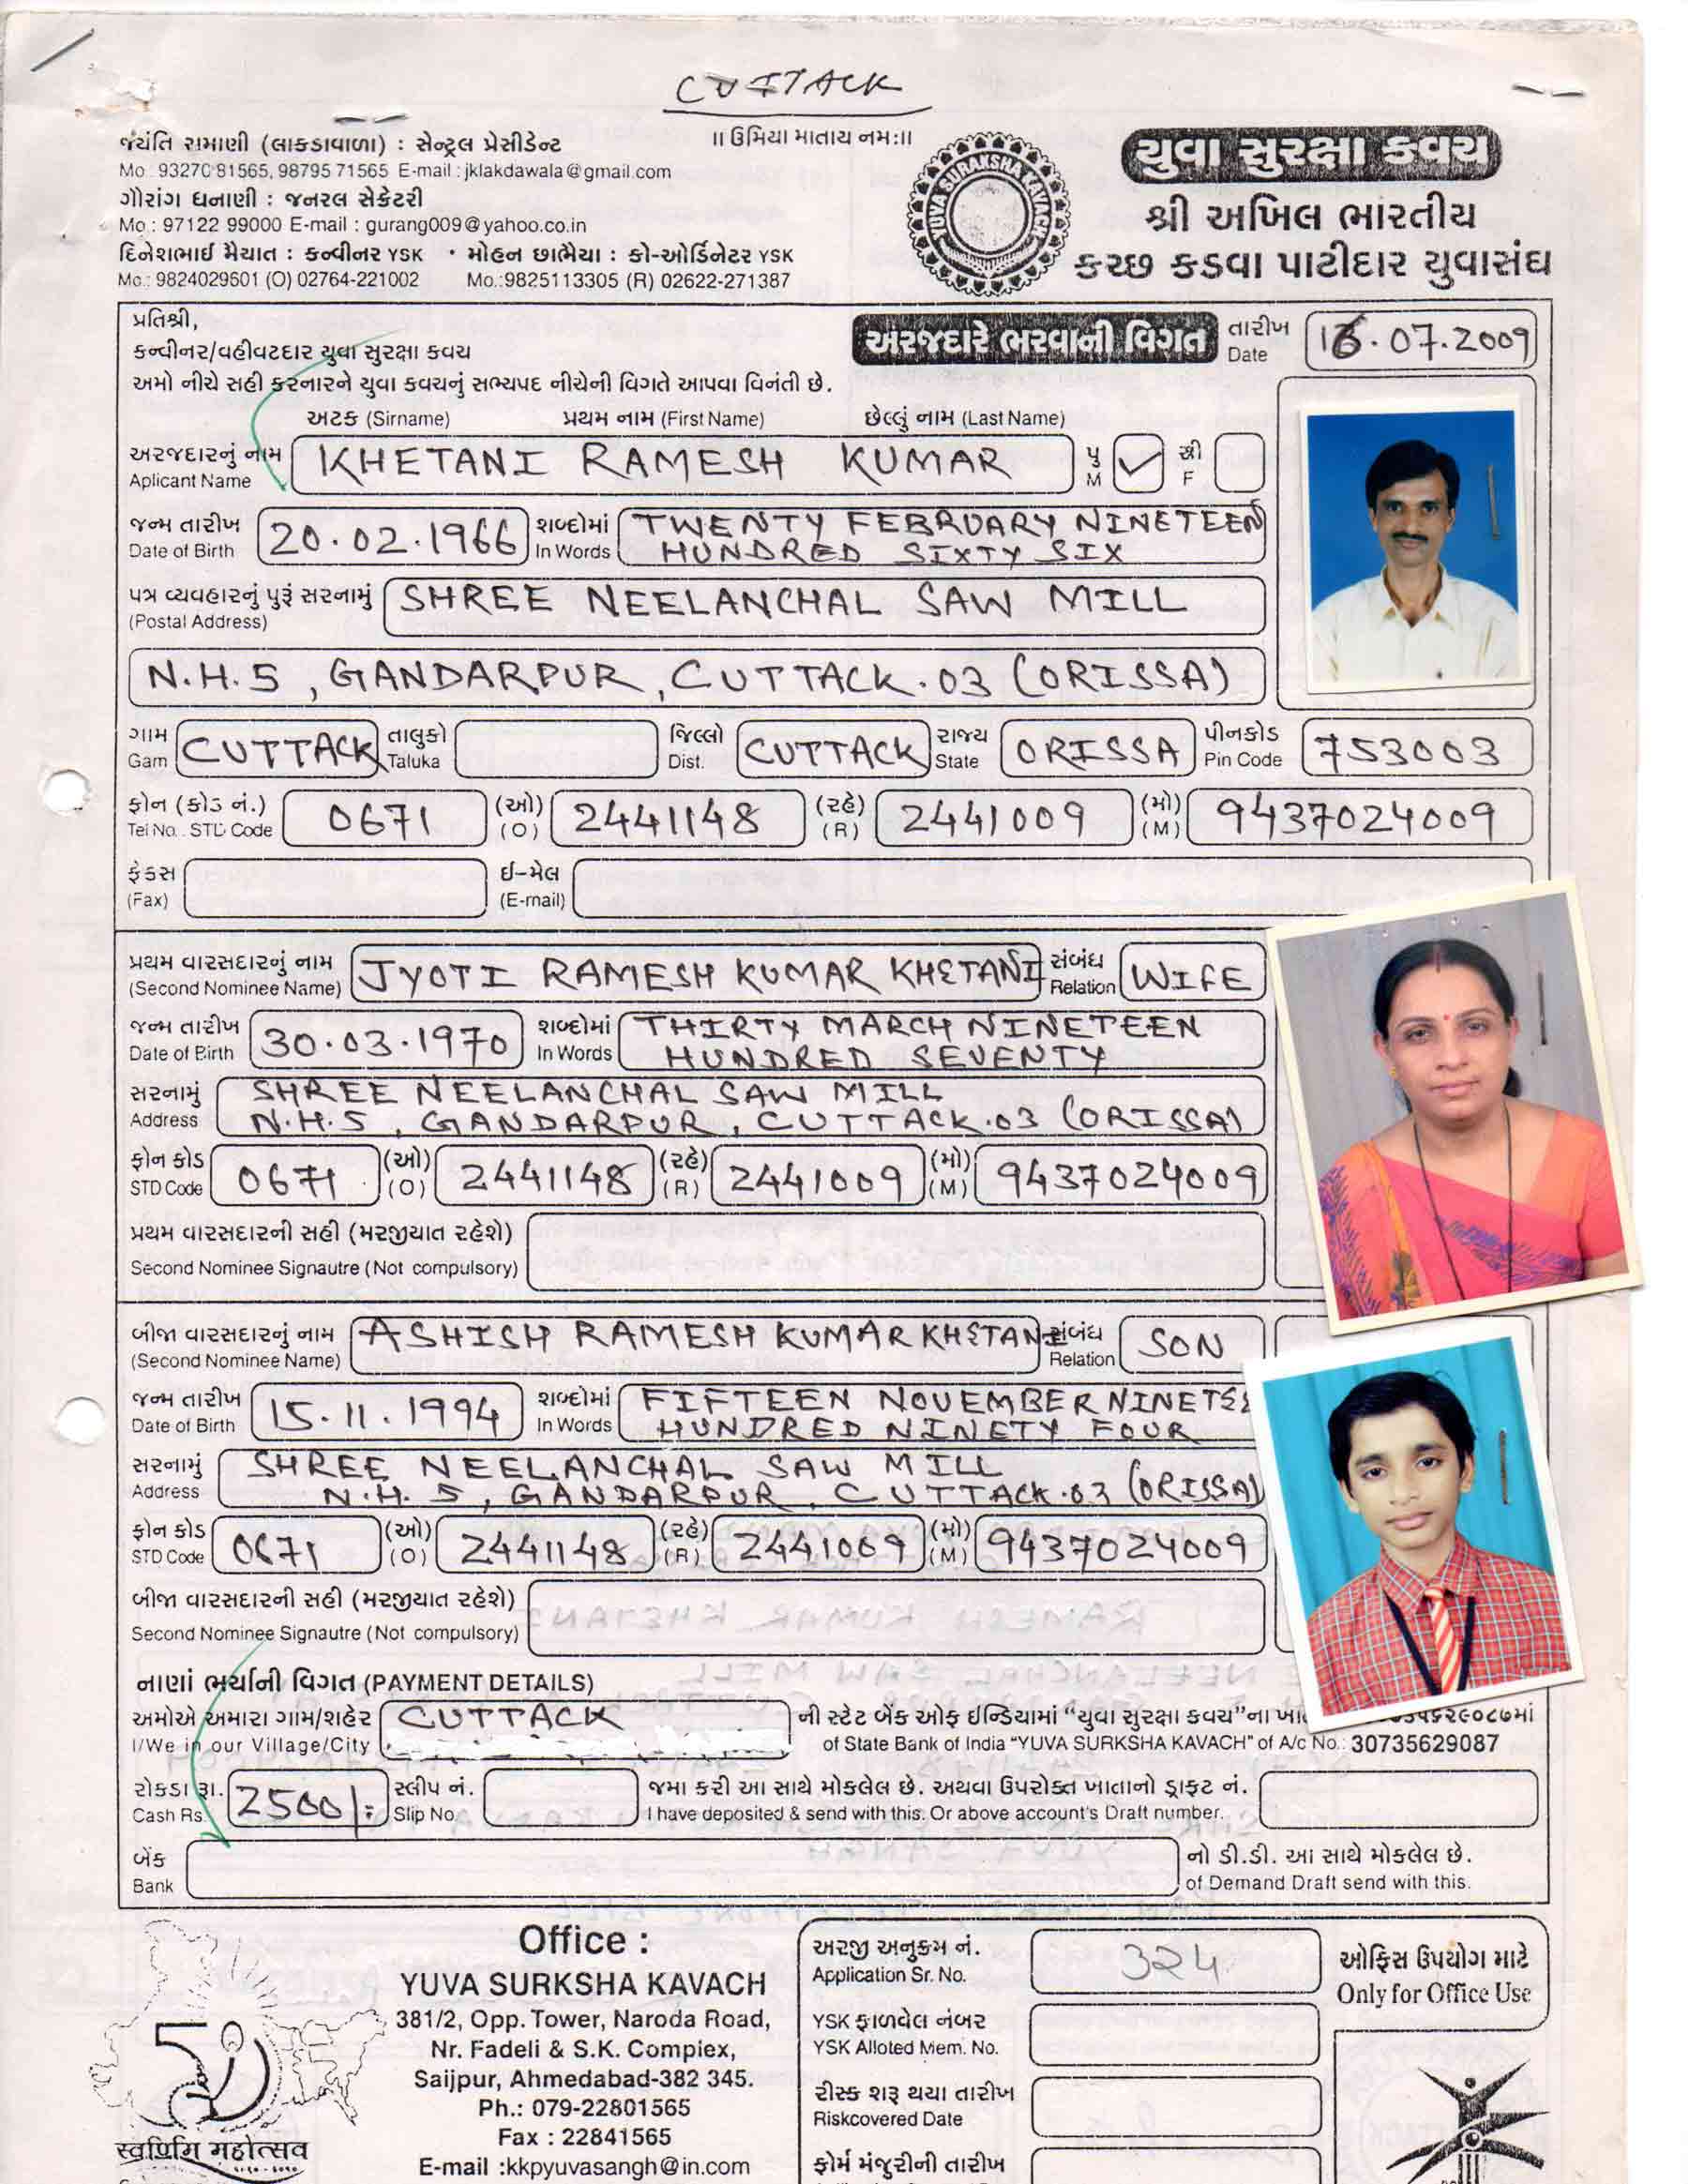 CUTTACK
॥ ઉમિયા માતાય નમઃ॥
જયંતિ રામાણી (લાકડાવાળા) : સેન્ટ્રલ પ્રેસીડેન્ટ
Mo. 93270 81565, 98795 71565 E-mail : jklakdawala@gmail.com
ગૌરાંગ ધનાણી : જનરલ સેક્રેટરી
Mo.: 97122 99000 E-mail : gurang009@yahoo.co.in
દિનેશભાઈ મૈયાત : કન્વીનર YSK • મોહન છાભૈયા : કો-ઓર્ડિનેટર YSK
Mo.: 9824029601 (O) 02764-221002 Mo.:9825113305 (R) 02622-271387
YUVA SURAKSHA KAVACH
યુવા સુરક્ષા કવચ
શ્રી અખિલ ભારતીય
કચ્છ કડવા પાટીદાર યુવાસંઘ
પ્રતિશ્રી,
કન્વીનર/વહીવટદાર યુવા સુરક્ષા કવચ
અમો નીચે સહી કરનારને યુવા કવચનું સભ્યપદ નીચેની વિગતે આપવા વિનંતી છે.
અરજદારે ભરવાની વિગત
તારીખ
Date 16.07.2009
અટક (Sirname) પ્રથમ નામ (First Name) છેલ્લું નામ (Last Name)
અરજદારનું નામ
Aplicant Name KHETANI RAMESH KUMAR પુ M ✓ સ્રી F
જન્મ તારીખ
Date of Birth 20.02.1966 શબ્દોમાં In Words TWENTY FEBRUARY NINETEEN
HUNDRED SIXTY SIX
પત્ર વ્યવહારનું પુરૂં સરનામું
(Postal Address) SHREE NEELANCHAL SAW MILL
N.H.5, GANDARPUR, CUTTACK.03 (ORISSA)
ગામ તાલુકો જિલ્લો રાજ્ય પીનકોડ
Gam CUTTACK Taluka Dist. CUTTACK State ORISSA Pin Code 753003
ફોન (કોડ નં.) (ઓ) (રહે) (મો)
Tel No.. STD Code 0671 (O) 2441148 (R) 2441009 (M) 9437024009
ફેક્સ ઈ-મેલ
(Fax) (E-mail)
પ્રથમ વારસદારનું નામ સંબંધ
(Second Nominee Name) JYOTI RAMESH KUMAR KHETANI Relation WIFE
જન્મ તારીખ શબ્દોમાં THIRTY MARCH NINETEEN
Date of Birth 30.03.1970 In Words HUNDRED SEVENTY
સરનામું SHREE NEELANCHAL SAW MILL
Address N.H.5, GANDARPUR, CUTTACK.03 (ORISSA)
ફોન કોડ (ઓ) (રહે) (મો)
STD Code 0671 (O) 2441148 (R) 2441009 (M) 9437024009
પ્રથમ વારસદારની સહી (મરજીયાત રહેશે)
Second Nominee Signautre (Not compulsory)
બીજા વારસદારનું નામ સંબંધ
(Second Nominee Name) ASHISH RAMESH KUMAR KHETANI Relation SON
જન્મ તારીખ શબ્દોમાં FIFTEEN NOVEMBER NINETEE
Date of Birth 15.11.1994 In Words HUNDRED NINETY FOUR
સરનામું SHREE NEELANCHAL SAW MILL
Address N.H. 5, GANDARPUR, CUTTACK.03 (ORISSA)
ફોન કોડ (ઓ) (રહે) (મો)
STD Code 0671 (O) 2441148 (R) 2441009 (M) 9437024009
બીજા વારસદારની સહી (મરજીયાત રહેશે)
Second Nominee Signautre (Not compulsory)
નાણાં ભર્યાની વિગત (PAYMENT DETAILS)
અમોએ અમારા ગામ/શહેર CUTTACK ની સ્ટેટ બેંક ઓફ ઈન્ડિયામાં “યુવા સુરક્ષા કવચ”ના
I/We in our Village/City of State Bank of India “YUVA SURKSHA KAVACH” of A/c No.: 30735629087
રોકડા રૂા. સ્લીપ નં. જમા કરી આ સાથે મોકલેલ છે. અથવા ઉપરોક્ત ખાતાનો ડ્રાફ્ટ નં.
Cash Rs. 2500/- Slip No. I have deposited & send with this. Or above account's Draft number.
બેંક નો ડી.ડી. આ સાથે મોકલેલ છે.
Bank of Demand Draft send with this.
50
Office :
YUVA SURKSHA KAVACH
381/2, Opp. Tower, Naroda Road,
Nr. Fadeli & S.K. Compiex,
Saijpur, Ahmedabad-382 345.
Ph.: 079-22801565
Fax : 22841565
E-mail :kkpyuvasangh@in.com
અરજી અનુક્રમ નં.
Application Sr. No. 324
YSK ફાળવેલ નંબર
YSK Alloted Mem. No.
રીસ્ક શરૂ થયા તારીખ
Riskcovered Date
ફોર્મ મંજુરીની તારીખ
ઓફિસ ઉપયોગ માટે
Only for Office Use